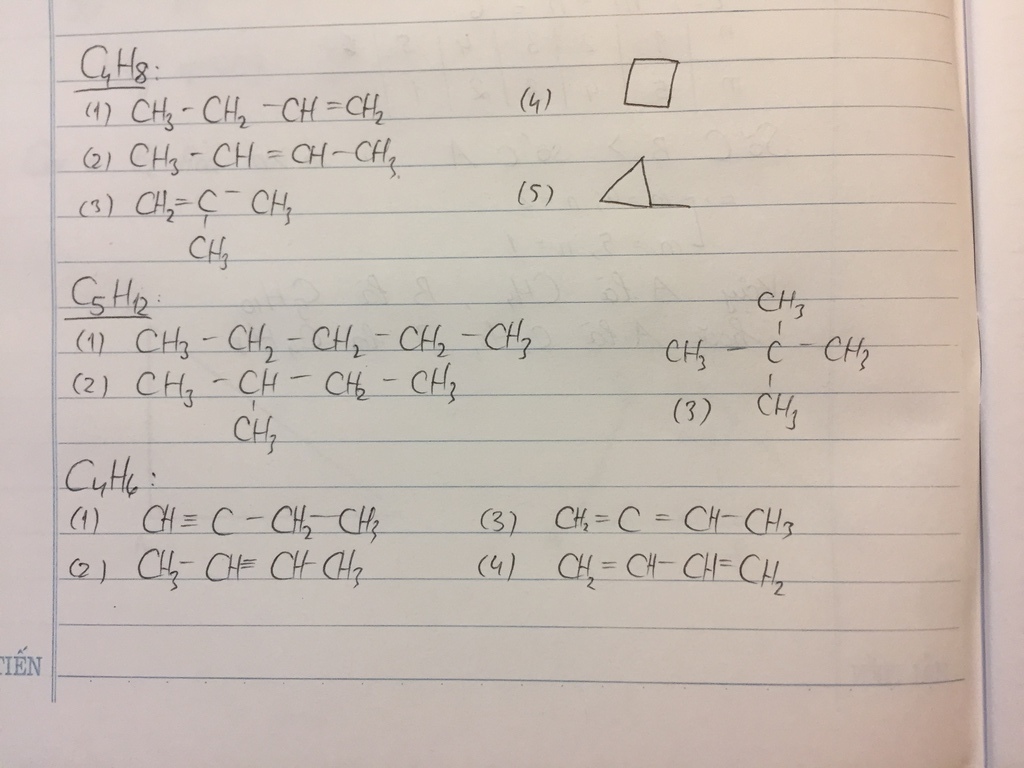 C₄H₈:
(1) CH₃ - CH₂ - CH = CH₂ (4)
(2) CH₃ - CH = CH - CH₃
(3) CH₂ = C - CH₃ (5)
CH₃
C₅H₁₂:
CH₃
(1) CH₃ - CH₂ - CH₂ - CH₂ - CH₃
CH₃ - C - CH₃
(2) CH₃ - CH - CH₂ - CH₃
(3) CH₃
CH₃
C₄H₆:
(1) CH ≡ C - CH₂ - CH₃ (3) CH₂ = C = CH - CH₃
(2) CH₃ - CH ≡ CH - CH₃ (4) CH₂ = CH - CH = CH₂
TIẾN